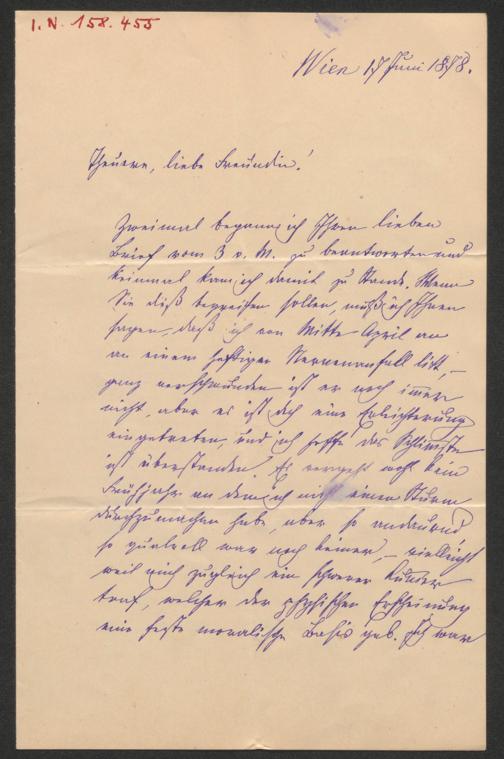 I. N. 158.455
Wien 17 Juni 1878.
Theuere, liebe Freundin!
Zweimal begann ich Ihren lieben
Brief vom 3 v. M. zu beantworten und
keinmal kam ich damit zu Stande. Wenn
Sie dieß begreifen sollen, muß ich Ihnen
sagen, daß ich von Mitte April an
an einem heftigen Nervenanfall litt, –
ganz verschwunden ist er noch immer
nicht, aber es ist doch eine Erleichterung
eingetreten, und ich hoffe das Schlimste
ist überstanden. Es vergeht wohl kein
Frühjahr an dem ich nicht einen Sturm
durchzumachen habe, aber so andauernd
so qualvoll war noch keiner, – vielleicht
weil mich zugleich ein schwerer Kummer
traf, welcher der physischen Erscheinung
eine feste moralische Basis gab. Ich war